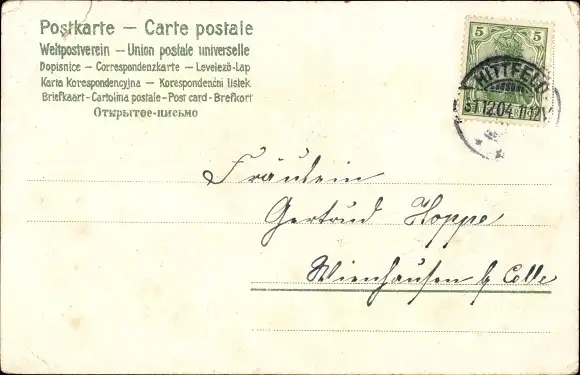 Postkarte — Carte postale
Weltpostverein — Union postale universelle
Dopisnice — Correspondenzkarte — Levelező-Lap
Karta Korespondencyjna — Korespondenční listek
Briefkaart — Cartolina postale — Post card — Brefkort
Открытое-письмо
5 5
HITTFELD
31.12.04. 11-12V.
Fräulein
Gertrud Hoppe
Wienhausen b/ Celle